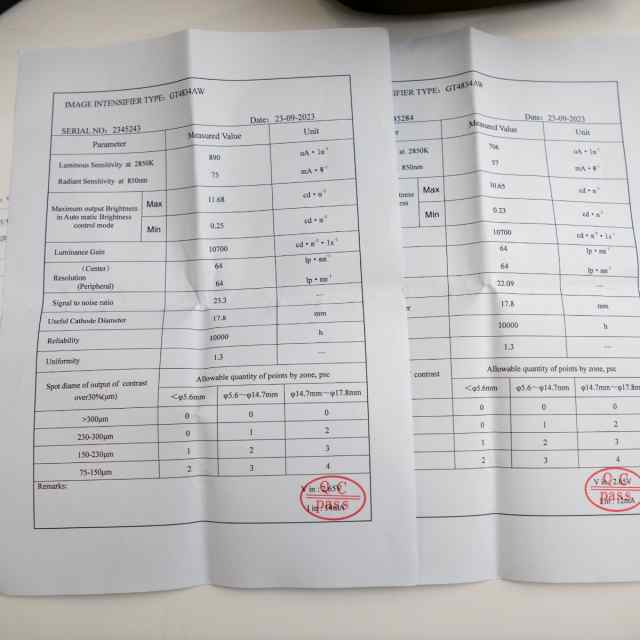 IMAGE INTENSIFIER TYPE: GT4834AW
SERIAL NO: 2345243
Date: 23-09-2023
Parameter Measured Value Unit
Luminous Sensitivity at 2850K 890
Radiant Sensitivity at 850nm 75
Maximum output Brightness in Auto matic Brightness control mode
Max 11.68
Min 0.25
Luminance Gain 10700
Resolution
(Center) 64
(Peripheral) 64
Signal to noise ratio 25.3 ---
Useful Cathode Diameter 17.8 mm
Reliability 10000 h
Uniformity 1.3 ---
Spot diame of output of contrast over30%(μm)
Allowable quantity of points by zone, psc
<φ5.6mm φ5.6~φ14.7mm φ14.7mm~φ17.8mm
>300μm 0 0 0
230-300μm 0 1 2
150-230μm 1 2 3
75-150μm 2 3 4
Remarks:
V in : 2.65V
I in : 14mA
QC
pass
IFIER TYPE: GT4834AW
45284
Date: 23-09-2023
er Measured Value Unit
at 2850K 706
850nm 57
Max 10.65
Min 0.23
10700
64
64
22.09 ---
17.8 mm
10000 h
1.3 ---
contrast
Allowable quantity of points by zone, psc
<φ5.6mm φ5.6~φ14.7mm φ14.7mm~φ17.8m
0 0 0
0 1 2
1 2 3
2 3 4
V in : 2.65V
I in : 12mA
QC
pass